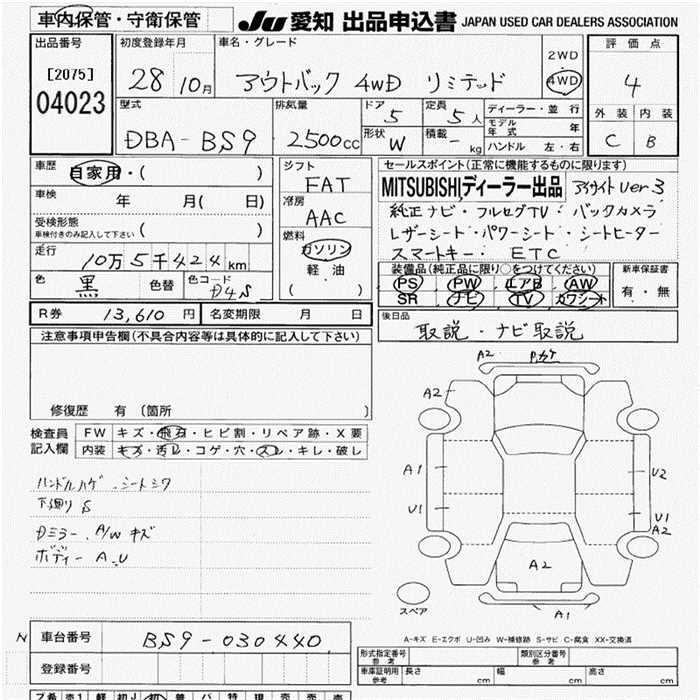 車内保管・守衛保管
JU 愛知 出品申込書 JAPAN USED CAR DEALERS ASSOCIATION
出品番号 初度登録年月 車名・グレード 評価点
[2075] 28 10月 アウトバック 4WD リミテッド 2WD 4WD 4
04023
型式 排気量 ドア 5 定員 5人 ディーラー・並行 外装 内装
DBA-BS9 2500cc 形状 W 積載 - kg モデル年式 年 C B
ハンドル 左・右
車歴 自家用・( ) シフト セールスポイント(正常に機能するものに限ります)
FAT MITSUBISHIディーラー出品 アイサイト ver.3
車検 年 月( 日) 冷房 純正ナビ・フルセグTV・バックカメラ
受検形態 ( ) AAC レザーシート・パワーシート・シートヒーター
車検付きのみ記入して下さい 燃料 スマートキー・ETC
走行 10万5千424km ガソリン 装備品(純正品に限り○をつけてください) 新車保証書
色 黒 色替 色コード D4S 軽油 PS PW エアB AW 有・無
( ) SR ナビ TV カワシート
R券 13,610円 名変期限 月 日 後日品
取説・ナビ取説
注意事項申告欄(不具合内容等は具体的に記入して下さい)
修復歴 有 〔箇所 〕
検査員 FW キズ・飛石・ヒビ割・リペア跡・X要
記入欄 内装 キズ・汚レ・コゲ・穴・スレ・キレ・破レ
ハンドルハゲ・シートシワ
下廻りS
Dミラー・A/Wキズ
ボディーA.U
A2
A2
A1
U2
U1
U1
A2
A2
A1
スペア
A-キズ E-エクボ U-凹み W-補修跡 S-サビ C-腐食 XX-交換済
N 車台番号 BS9-030440
登録番号
形式指定番号 参考 類別区分番号 参考
車庫証明用 参考 長さ cm 幅 cm 高さ cm